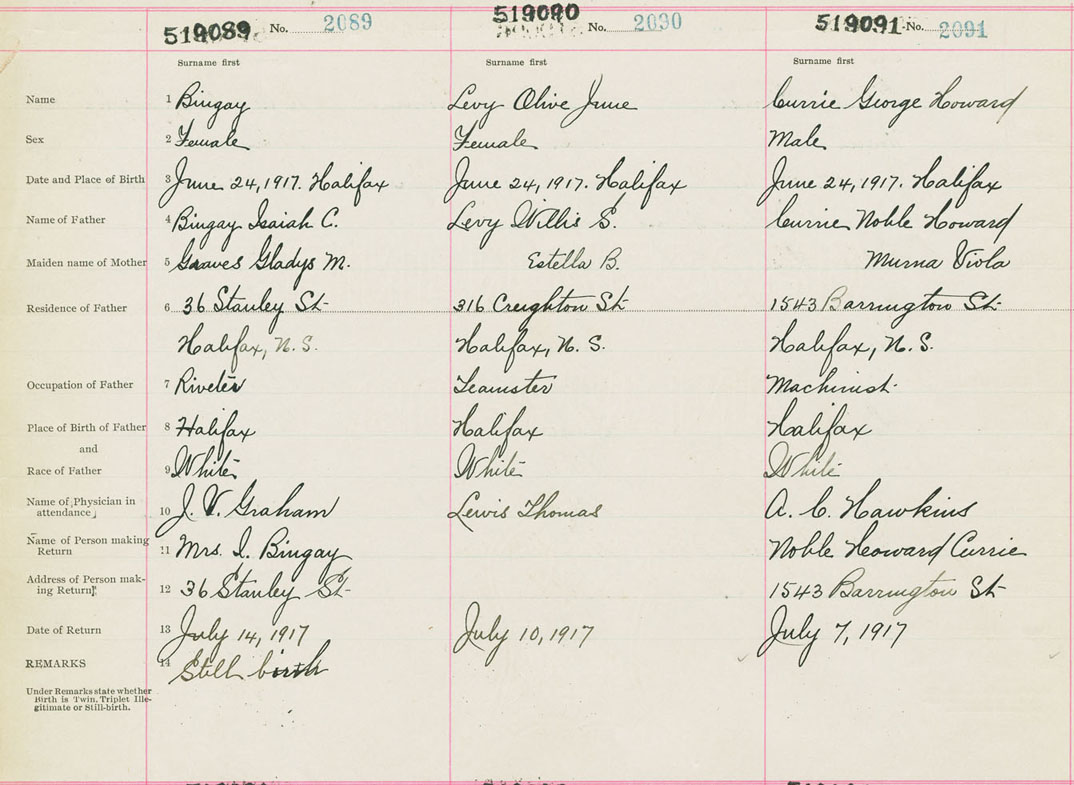 519089 No. 2089 519090 No. 2090 519091 No. 2091
Surname first Surname first Surname first
Name 1 Bingay Levy Olive June Currie George Howard
Sex 2 Female Female Male
Date and Place of Birth 3 June 24, 1917. Halifax June 24, 1917. Halifax June 24, 1917. Halifax
Name of Father 4 Bingay Isaiah C. Levy Willis S. Currie Noble Howard
Maiden name of Mother 5 Graves Gladys M. Estella B. Murna Viola
Residence of Father 6 36 Stanley St 316 Creighton St 1543 Barrington St
Halifax, N.S. Halifax, N.S. Halifax, N.S.
Occupation of Father 7 Riveter Teamster Machinist
Place of Birth of Father 8 Halifax Halifax Halifax
and
Race of Father 9 White White White
Name of Physician in
attendance 10 J. V. Graham Lewis Thomas A. C. Hawkins
Name of Person making
Return 11 Mrs. I. Bingay Noble Howard Currie
Address of Person mak-
ing Return 12 36 Stanley St 1543 Barrington St
Date of Return 13 July 14, 1917 July 10, 1917 July 7, 1917
REMARKS 14 Still birth
Under Remarks state whether
Birth is Twin, Triplet Ille-
gitimate or Still-birth.